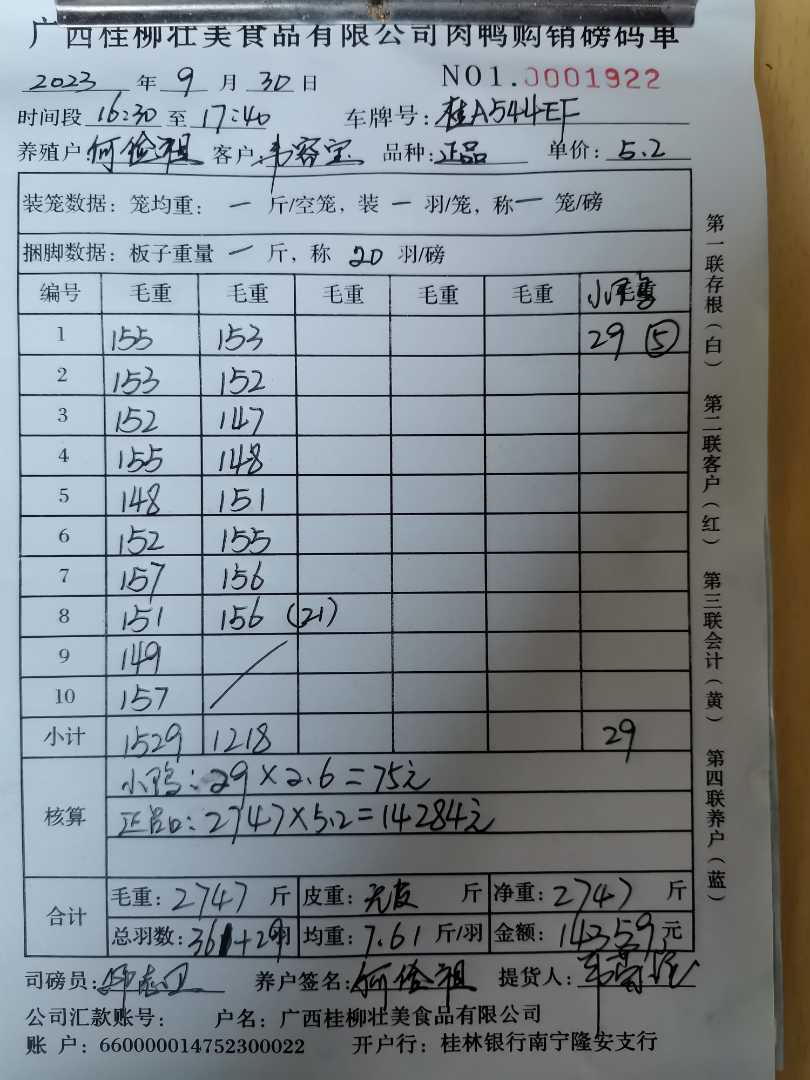 广西桂柳壮美食品有限公司肉鸭购销磅码单
2023 年 9 月 30 日 NO1.0001922
时间段 16:30 至 17:40 车牌号: 桂A544EF
养殖户: 何俭祖 客户: 韦容宝 品种: 正品 单价: 5.2
装笼数据: 笼均重: 一 斤/空笼, 装 一 羽/笼, 称 一 笼/磅
捆脚数据: 板子重量 一 斤, 称 20 羽/磅
编号 毛重 毛重 毛重 毛重 毛重 小鸭
1 155 153 29 ⑤
2 153 152
3 152 147
4 155 148
5 148 151
6 152 155
7 157 156
8 151 156 (21)
9 149
10 157
小计 1529 1218 29
核算 小鸭: 29×2.6=75元
正品: 2747×5.2=14284元
合计 毛重: 2747 斤 皮重: 无皮 斤 净重: 2747 斤
总羽数: 361+29羽 均重: 7.61 斤/羽 金额: 14359 元
司磅员: 养户签名: 何俭祖 提货人:
公司汇款账号: 户名: 广西桂柳壮美食品有限公司
账 户: 660000014752300022 开户行: 桂林银行南宁隆安支行
第一联存根(白) 第二联客户(红) 第三联会计(黄) 第四联养户(蓝)